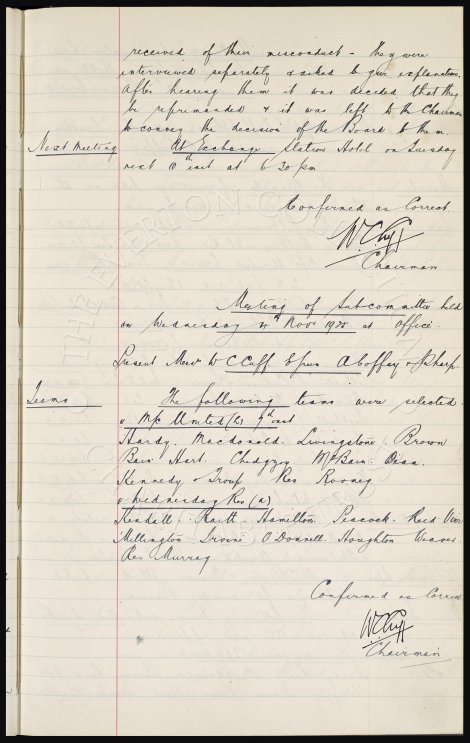 received of their misconduct - they were
interviewed separately & asked to give explanations.
After hearing them it was decided that they
be reprimanded & it was left to the Chairman
to convey the decision of the Board to them.
Next Meeting At Exchange Station Hotel on Tuesday
next 10th inst at 6 30 pm
Confirmed as Correct
W.C. Cuff
Chairman
Meeting of Sub-committee held
on Wednesday 4th Novr 1925 at Office.
Present Messrs W C Cuff A Coffey & Sharp.
Teams The following teams were selected
v M/c United (h) 7th inst
Hardy. Macdonald. Livingstone. Brown
Bain. Hart. Chedgzoy. McBain. Dean.
Kennedy & Troup Res Rooney
v Wednesday Res (a)
Kendall. Raitt. Hamilton. Peacock. Reid Virr
Millington Irvine O'Donnell Houghton Weaver.
Res Murray
Confirmed as Correct
W.C. Cuff
Chairman
THE EVERTON COLLECTION